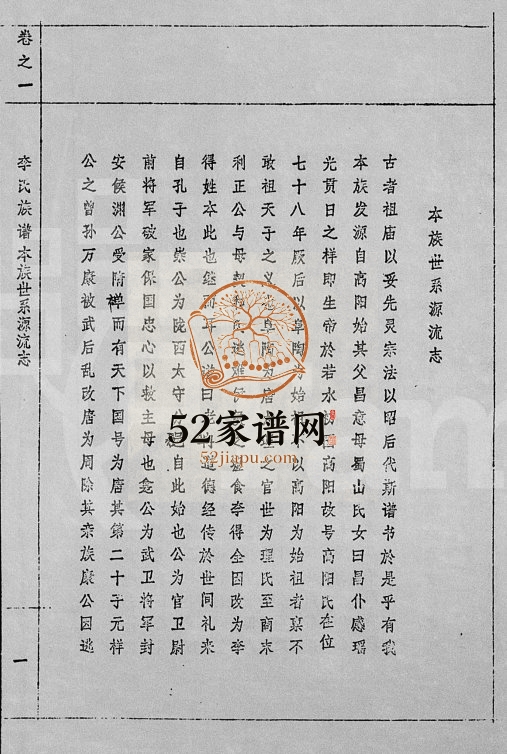 本族世系源流志
古者祖庙以妥先灵宗法以昭后代斯谱书於是乎有我
本族发源自高阳始其父昌意母蜀山氏女曰昌仆感瑶
光贯日之祥即生帝於若水初国高阳故号高阳氏在位
七十八年厥后以皋陶为始祖 以高阳为始祖者禀不
敢祖天子之义 皋陶为唐 之官世为理氏至商末
利正公与母契 逃难 食李得全因改为李
得姓本此也继而耳公谥曰老 道德经传於世间礼来
自孔子也崇公为陇西太守公 自此始也公为官卫尉
前将军破家保国忠心以救主母也 公为武卫将军封
安侯渊公受隋禅而有天下国号为唐其第二十子元祥
公之曾孙万康被武后乱改唐为周除其亲族康公因逃
卷之一
李氏族谱本族世系源流志
一
52家谱网
52jiapu.com